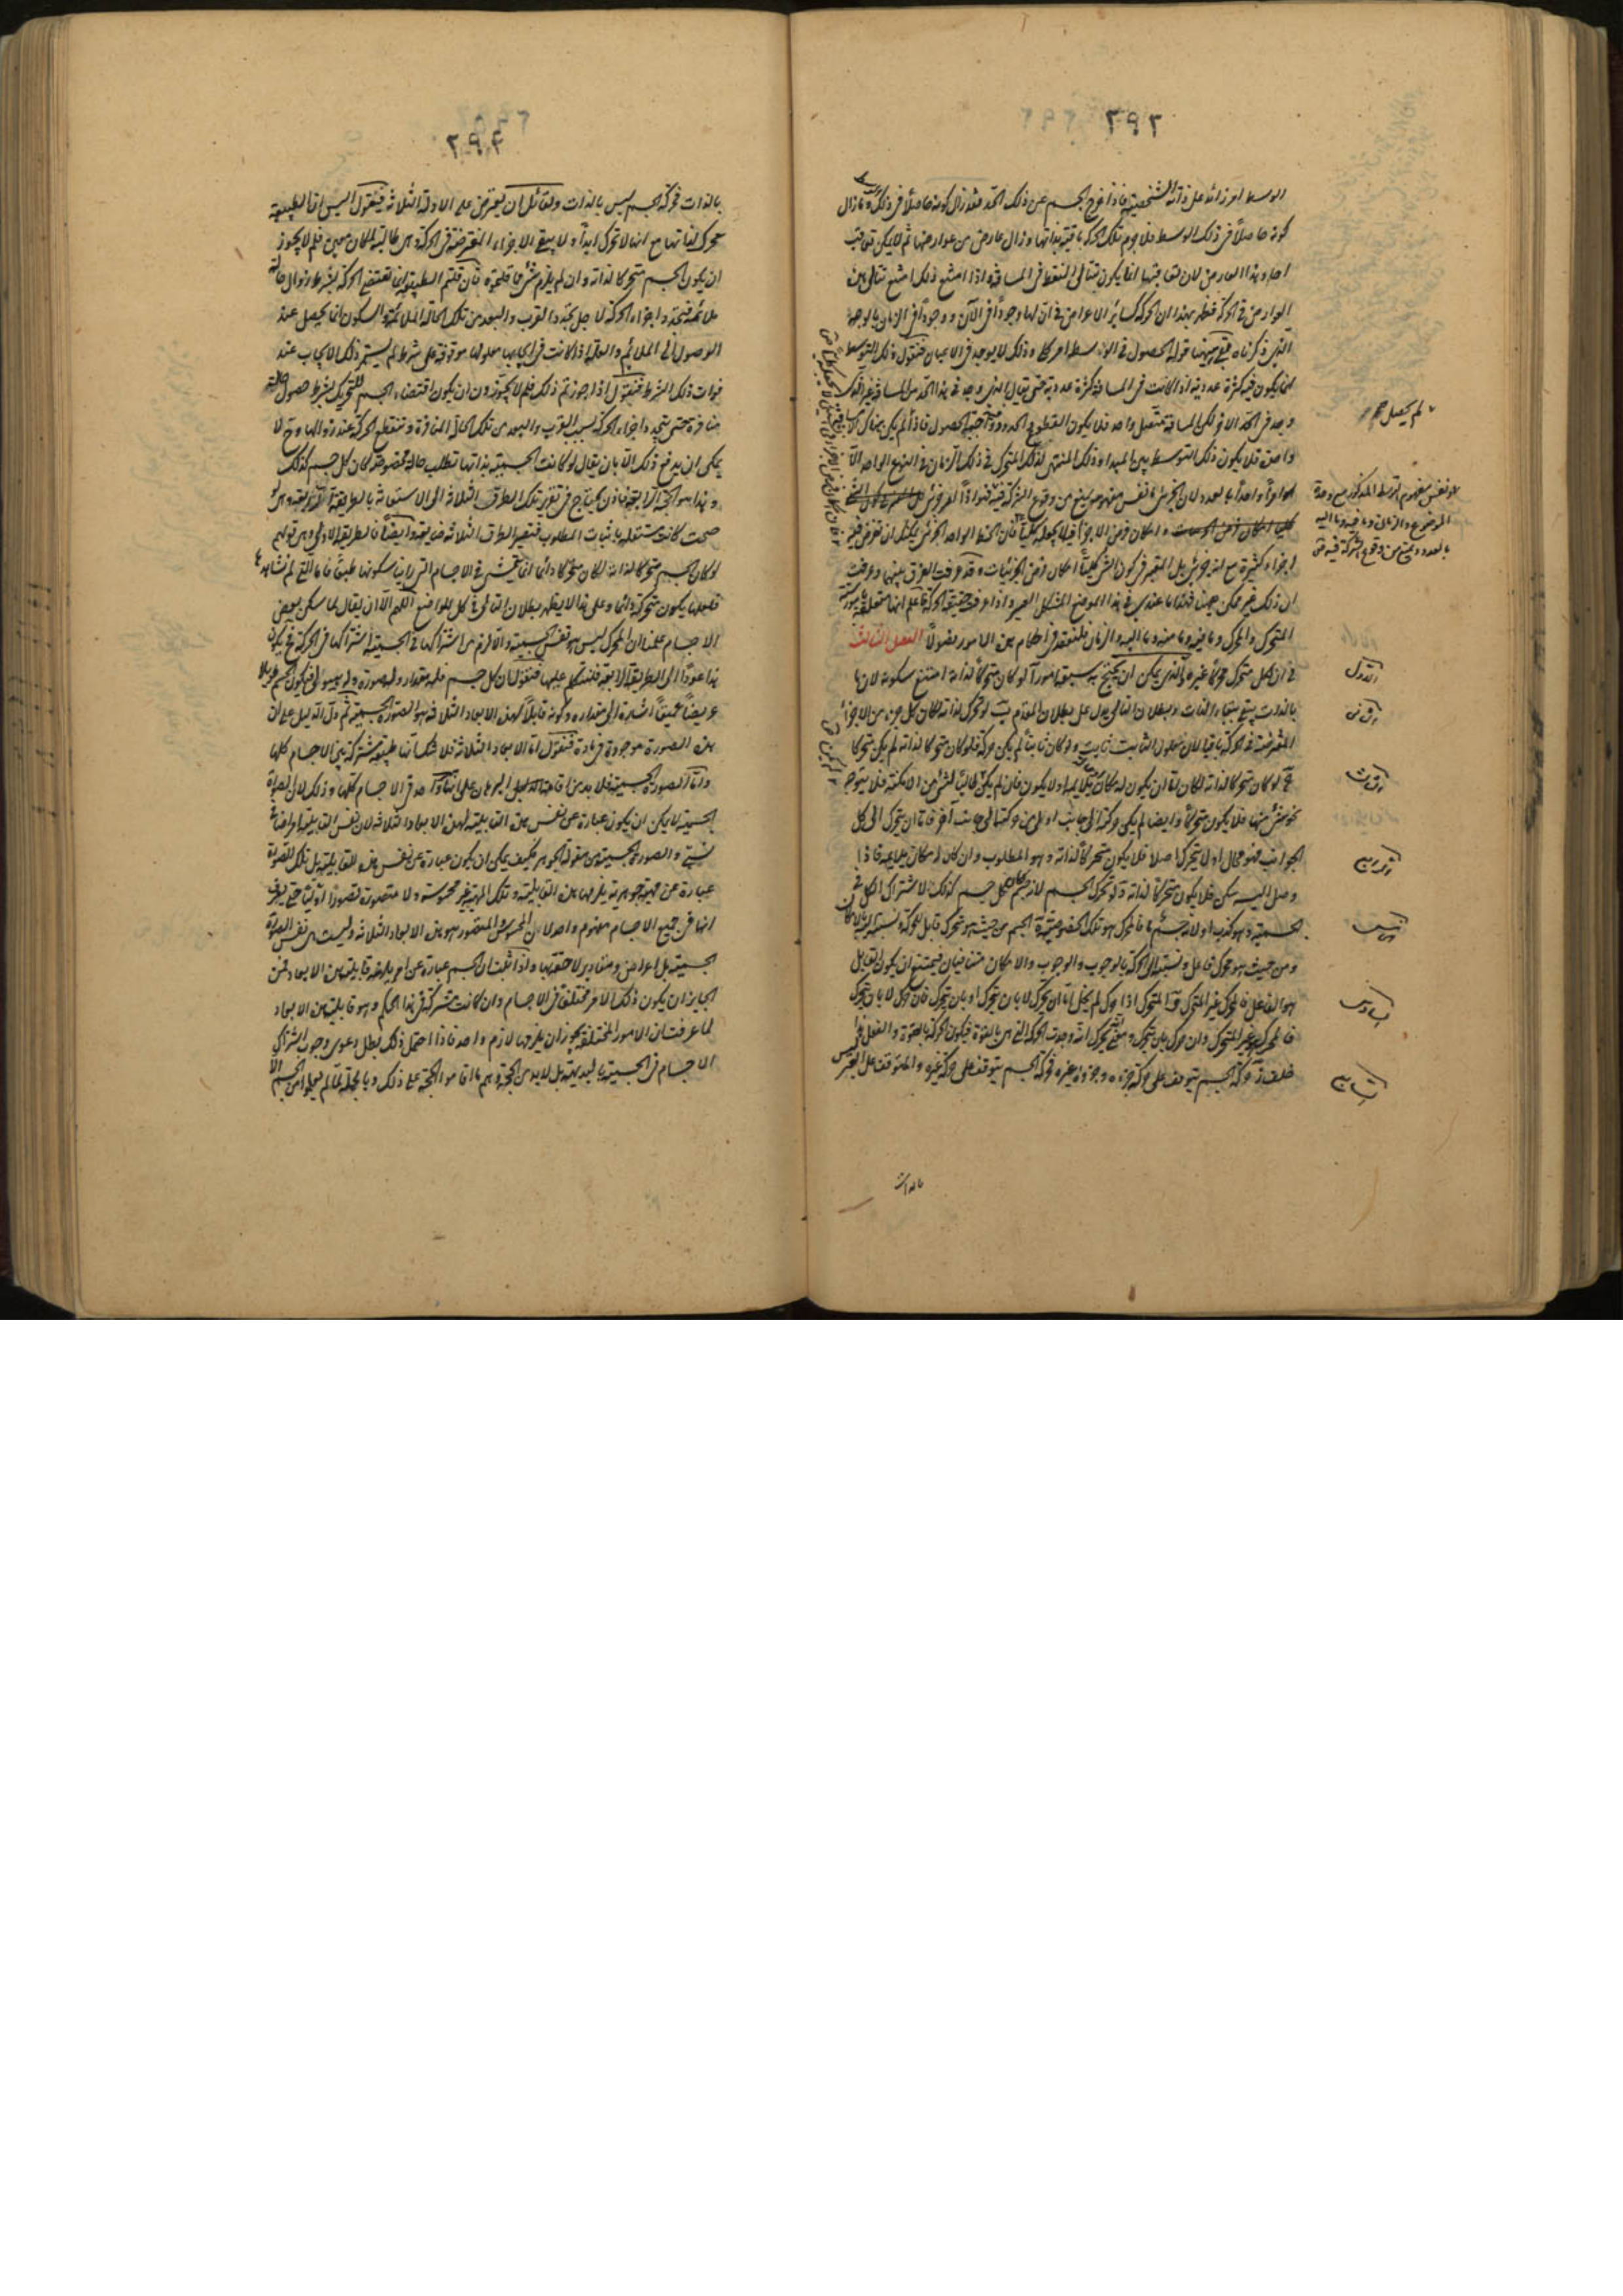 ٢٩٢
الوسط امر زائد على ذاته الشخصية فاذا خرج الجسم عن ذلك الحد فقد زال كونه حاصلاً فى ذلك الوسط وما زال
كونه حاصلاً فى ذلك الوسط فلا جرم تلك الحركة باقية بذاتها وزال عارض من عوارضها ثم لا يمكن تعاقب
احاد هذا العارض لان تعاقبها انما يكون بتتالى النقط فى المسافة واذا امتنع ذلك امتنع تتالى هذه
العوارض فى الحركة فظهر بهذا ان الحركة كسائر الاعراض فى ان لها وجوداً فى الآن ووجوداً فى الزمان بالوجه
الذى ذكرناه بقى ههنا قوله الحصول فى الوسط امر كلى وذلك لا يوجد فى الاعيان فنقول ذلك التوسط
انما يكون فيه كثرة عددية اذا كانت فى المسافة كثرة عددية حتى يقال الذى وجد فى هذا الحد من المسافة غير الذى
وجد فى الحد الآخر لكن المسافة متصل واحد فلا يكون القطوع والحدود واجبة الحصول فاذا لم يكن هناك الا مسافة
واحدة فلا يكون ذلك التوسط بين المبدا وذلك المنتهى لذلك المتحرك فى ذلك الزمان فى النهج الواحد الا
امراً واحداً بالعدد لان الجزئى نفس مفهومه يمنع من وقوع الشركة فيه
وامكان فرض الاجزاء فيه لا يجعله كلياً فان الخط الواحد الجزئى يمكنك ان تفرض فيه
اجزاء كثيرة مع انه جزئى بل المعتبر فى كون الشىء كلياً امكان فرض الجزئيات وقد عرفت الفرق بينهما وعرفت
ان ذلك غير ممكن ههنا فهذا ما عندى فى هذا الموضع المشكل العسير واذا عرفت حقيقة الحركة فاعلم انها متعلقة بامور ستة
المتحرك والمحرك وما فيه وما منه وما اليه والزمان فلنعقد فى احكام هذه الامور فصولاً الفصل الثالث
فى ان لكل متحرك محركاً غيره والذى يمكن ان يحتج به سبعة امور آ لو كان متحركاً لذاته امتنع سكونه لان ما
بالذات يبقى ببقاء الذات وبطلان التالى يدل على بطلان المقدم ب لو تحرك لذاته لكان كل جزء من الاجزاء
المفترضة فى الحركة باقياً لان معلول الثابت ثابت ولو كان ثابتاً لم يكن حركة فلو كان متحركا لذاته لم يكن متحركا
ج لو كان متحركا لذاته لكان اما ان يكون له مكان يلايمه او لا يكون فان لم يكن طالباً لشىء من الامكنة فلا يتوجه
نحو شىء منها فلا يكون متحركاً وايضا لم يكن حركته الى جانب اولى من حركته الى جانب آخر فاما ان يتحرك الى كل
الجوانب فهو محال او لا يتحرك اصلا فلا يكون متحركاً لذاته وهو المطلوب وان كان له مكان يلايمه فاذا
وصل اليه سكن فلا يكون متحركاً لذاته د لو تحرك الجسم لانه جسم لكان كل جسم كذلك لاشتراك الكل فى
الجسمية وهو كذب او لانه جسم ما فالمحرك هو تلك الخصوصية ه الجسم من حيث هو متحرك قابل للحركة ونسبته اليها بالامكان
ومن حيث هو محرك فاعل ونسبته الى الحركة بالوجوب والوجوب والامكان متنافيان فيمتنع ان يكون القابل
هو الفاعل فالمحرك غير المتحرك و المتحرك اذا حرك لم يخل اما ان يحرك لا بان يتحرك او بان يتحرك فان حرك لا بان يتحرك
فالمحرك هو غير المتحرك وان حرك بان يتحرك ومعنى يتحرك انه وجدت الحركة التى هى بالقوة فيكون الحركة بالقوة والفعل هذا
خلف ز حركة الجسم تتوقف على حركة جزءه وجزءه غيره فحركة الجسم تتوقف على حركة غيره والمتوقف على الغير ليس
بالذات
لم يحصل
هو نفس مفهوم التوسط المذكور مع وحدة
الموضوع والزمان وما فيه وما اليه
بالعدد ويمنع من وقوع الشركة فيه
الاول
الثانى
الثالث
الرابع
الخامس
السادس
السابع
٢٩٣
بالذات فحركة الجسم ليس بالذات ولقائل ان يعترض على الادلة الثلاثة فيقول اليس ان الطبيعة
محرك لذاتها مع انها لا تحرك ابداً ولا يبقى الاجزاء المفترضة فى الحركة وهى طالبة لمكان معين فلم لا يجوز
ان يكون الجسم متحركا لذاته وان لم يلزم شىء مما قلتموه فان قلتم الطبيعة انما تقتضى الحركة بشرط زوال حالة
ملائمة فتجدد اجزاء الحركة لاجل تجدد القرب والبعد من تلك الحالة الملائمة والسكون انما يحصل عند
الوصول الى الملائم والعلة اذا كانت فى ايجابها معلولها موقوفة على شرط لم يستمر ذلك الايجاب عند
فوات ذلك الشرط فنقول اذا جوزتم ذلك فلم لا تجوزون ان يكون اقتضاء الجسم للتحريك بشرط حصول حالة
منافرة حتى تتجدد اجزاء الحركة بسبب القرب والبعد من تلك الحالة المنافرة وتنقطع الحركة عند زوالها وح لا
يمكن ان يدفع ذلك الا بان يقال لو كانت الجسمية بذاتها تطلب حالة مخصوصة لكان كل جسم كذلك
وهذا هو الحجة الرابعة فاذن يحتاج فى تقرير تلك الطرق الثلاثة الى الاستعانة بالطريقة الرابعة وهى لو
صحت كانت مستقلة باثبات المطلوب فتصير الطرق الثلاثة ضايعة وايضاً فالطريقة الاولى وهى قولهم
لو كان الجسم متحركا لذاته لكان متحركا دائما انما تتمشى فى الاجسام التى راينا سكونها طبعاً فاما التى لم نشاهد
فلعلها يكون متحركة دائما وعلى هذا لا يظهر بطلان التالى فى كل المواضع اللهم الا ان يقال لما سكن بعض
الاجسام علمنا ان المحرك ليس هو نفس الجسمية والا لزم من اشتراكها فى الجسمية اشتراكها فى الحركة فح يكون
هذا عوداً الى الطريقة الرابعة فلنتكلم عليها فنقول ان كل جسم فله مقدار وله صورة وله هيولى فكون الجسم طويلا
عريضاً عميقاً اشارة الى مقداره وكونه قابلاً لهذه الابعاد الثلاثة هو الصورة الجسمية ثم دل الدليل على ان
هذه الصورة موجودة فى مادة فنقول اما الابعاد الثلاثة فلا شك انها طبيعة مشتركة بين الاجسام كلها
واما الصورة الجسمية فلا بد من اقامة الدليل البرهان على انها امر واحد فى الاجسام كلها وذلك لان الصورة
الجسمية لا يمكن ان يكون عبارة عن نفس هذه القابلية لهذه الابعاد الثلاثة لان نفس القابلية امر اضافى
نسبى والصورة الجسمية من مقولة الجوهر فكيف يمكن ان يكون عبارة عن نفس هذه القابلية بل تلك الصورة
عبارة عن مهية جوهرية يلزمها هذه القابلية وتلك المهية غير محسوسة ولا متصورة تصوراً اولياً حتى يعرف
انها فى جميع الاجسام مفهوم واحد لان المحسوس المتصور هو هذه الابعاد الثلاثة وليست هى نفس الصورة
الجسمية بل اعراض ومقادير لاحقة بها واذا ثبت ان الجسم عبارة عن امر يلزمه قابلية هذه الابعاد فمن
الجايز ان يكون ذلك الامر مختلفاً فى الاجسام وان كانت مشتركة فى هذا الحكم وهو قابلية هذه الابعاد
لما عرفت ان الامور المختلفة يجوز ان يلزمها لازم واحد فاذا احتمل ذلك بطل دعوى وجوب اشتراك
الاجسام فى الجسمية بالبديهة بل لا بد من الحجة وهم ما اقاموا الحجة على ذلك وبالجملة لما لم يعلموا من الجسم الا